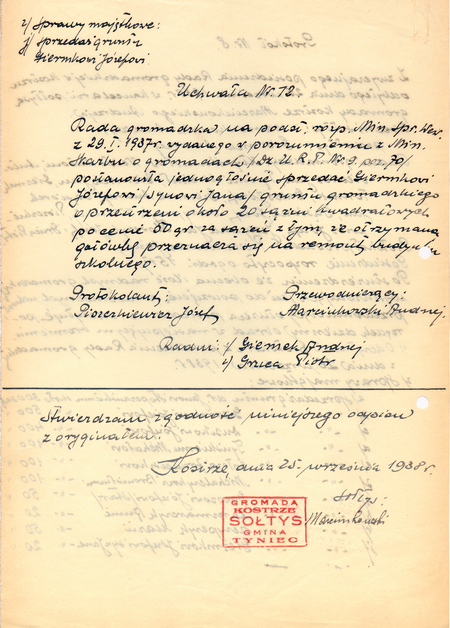 2/ Sprawy majątkowe:
j/ sprzedaż gruntu
Giermkowi Józefowi
Uchwała Nr. 12.
Rada gromadzka na podst. rozp. Min. Spr. Wew.
z 29. I. 1937r. wydanego w porozumieniu z Min.
Skarbu o gromadach /Dz. U. R. P. Nr. 9. poz. 70/
postanowiła jednogłośnie sprzedać Giermkowi
Józefowi /synowi Jana/ gruntu gromadzkiego
o przestrzeni około 20 sążni kwadratowych
po cenie 50 gr. za sążeń z tym, że otrzymaną
gotówkę przeznacza się na remont budynku
szkolnego.
Protokolant: Przewodniczący:
Józef Marcinkowski Andrzej.
Radni: 1/ Giemek Andrzej
2/ Grzeca Piotr
Stwierdzam zgodność niniejszego odpisu
z oryginałem.
Kostrze, dnia 25. września 1938 r.
Sołtys:
Marcinkowski
GROMADA
KOSTRZE
SOŁTYS
GMINA
TYNIEC